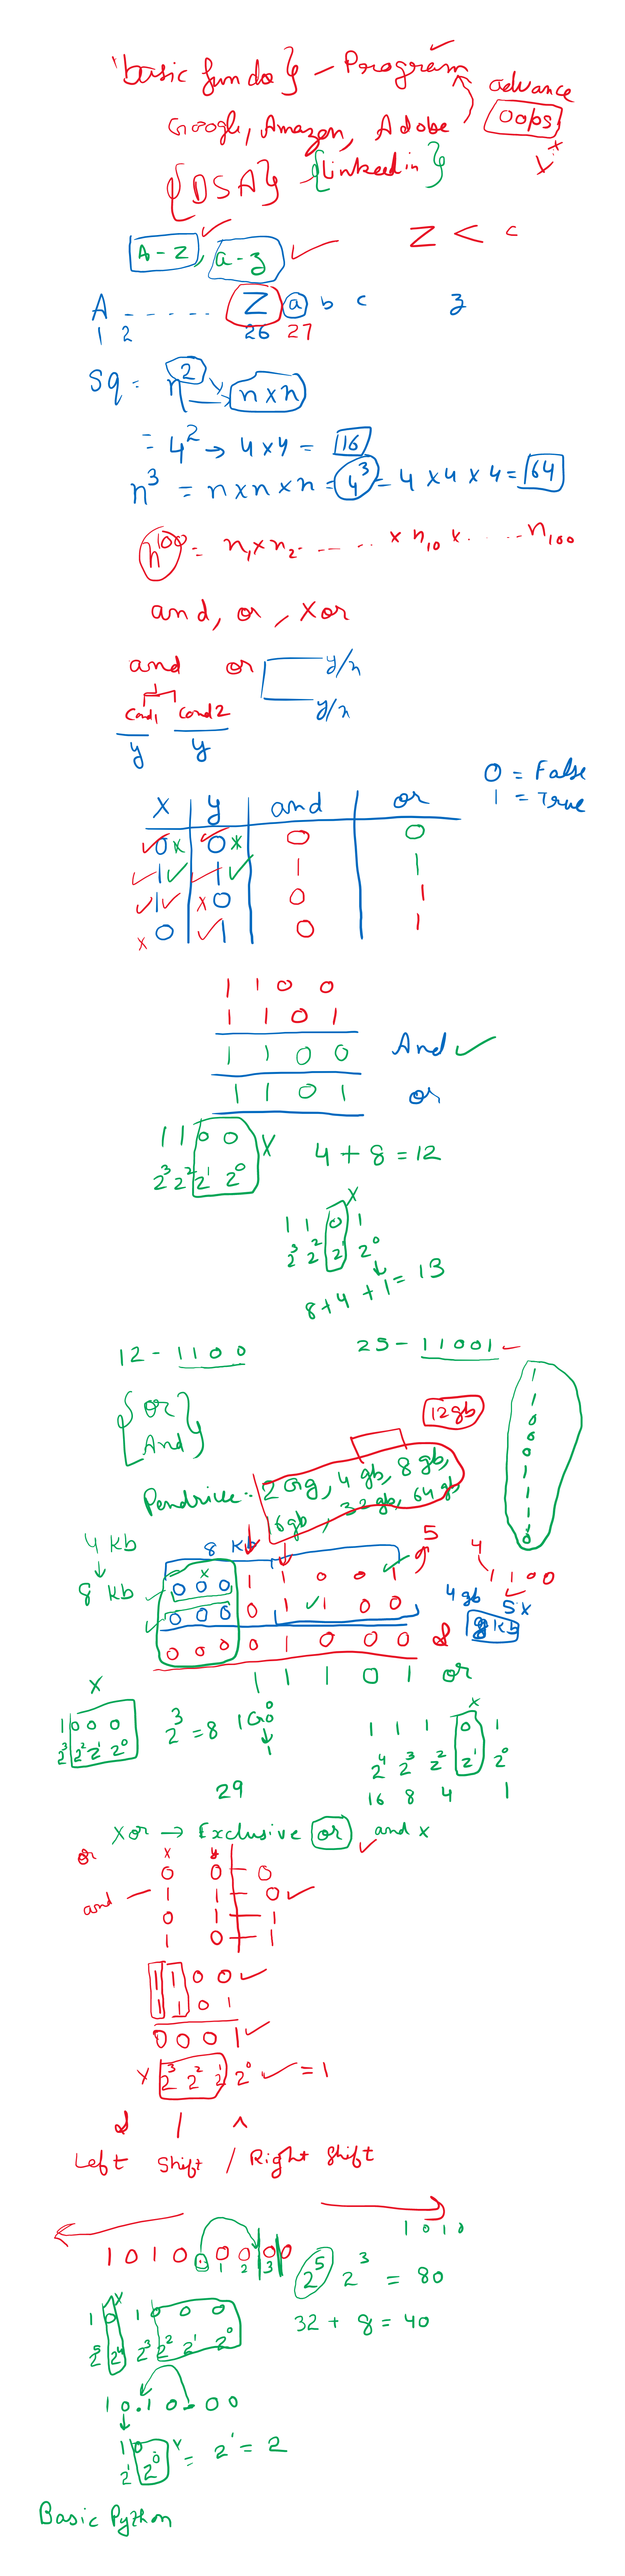 'basic funda} - Program
advance
Google, Amazon, Adobe
oops
{DSA} {linkedin}
A-Z, a-z
Z < c
A ...... Z a b c z
1 2 26 27
Sq = n² → n×n
= 4² → 4×4 = 16
n³ = n×n×n = 4³ = 4×4×4 = 64
n¹⁰⁰ = n₁×n₂ ...... × n₁₀ × ...... n₁₀₀
and, or, xor
and or y/n
y/n
Cond1 Cond2
y y
0 = False
1 = True
x y and or
0 x 0 x 0 0
1 1 1 1
1 x 0 0 1
x 0 1 0 1
1 1 0 0
1 1 0 1
1 1 0 0 And
1 1 0 1 or
1 1 0 0 x
2³ 2² 2¹ 2⁰
4 + 8 = 12
x
1 1 0 1
2³ 2² 2¹ 2⁰
8 + 4 + 1 = 13
12 - 1100
25 - 11001
{or
And}
1
1
0
0
0
1
1
1
1
0
12gb
Pendrive:- 2gg, 4gb, 8gb,
16gb, 32gb, 64gb
4 kb
8 kb
8 kb
5
x
0 0 0 1 1 0 0 1
0 0 0 0 1 1 0 0
0 0 0 0 1 0 0 0 &
1 1 1 0 1 or
4
1 1 0 0
4gb 5 x
8 kb
x
1 0 0 0
2³ 2² 2¹ 2⁰
2³ = 8
1
29
x
1 1 1 0 1
2⁴ 2³ 2² 2¹ 2⁰
16 8 4 1
Xor → Exclusive or and x
or x y
0 0 - 0
and - 1 1 - 0
0 1 - 1
1 0 - 1
1 1 0 0
1 1 0 1
0 0 0 1
x 2³ 2² 2¹ 2⁰ = 1
& | ^
Left Shift / Right Shift
1 0 1 0
1 0 1 0 0 0 0 0 0
1 2 3
2⁵ 2³ = 80
32 + 8 = 40
x
1 0 1 0 0 0
2⁵ 2⁴ 2³ 2² 2¹ 2⁰
1 0 . 1 0 . 0 0
1 0 x
2¹ 2⁰ = 2¹ = 2
Basic Python